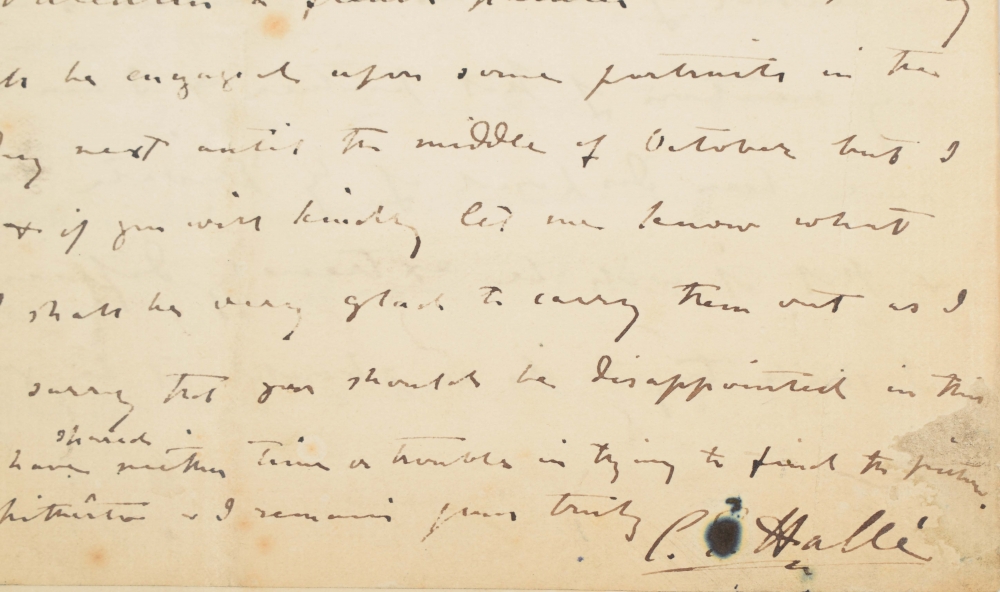 be engaged upon some portraits in the
next until the middle of October but I
if you will kindly let me know what
shall be very glad to carry them out as I
sorry that you should be disappointed in this
spared
have neither time or trouble in trying to find the picture
hitherto & I remain yours truly
C. Hallé